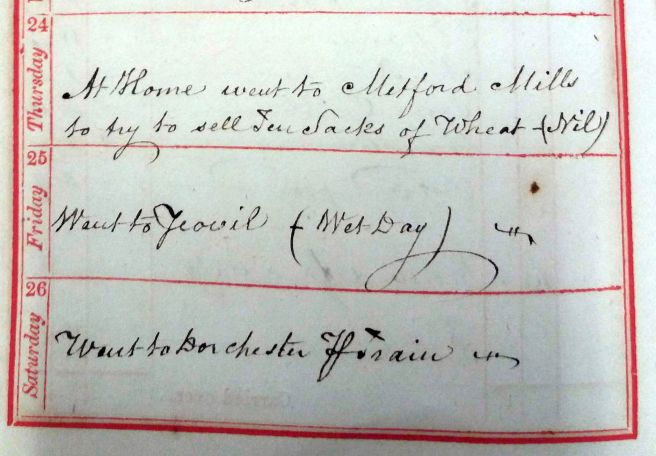 24
Thursday
At Home went to Metford Mills
to try to sell Ten Sacks of Wheat - (Nil)
25
Friday
Went to Yeovil (Wet Day)
26
Saturday
Went to Dorchester Train